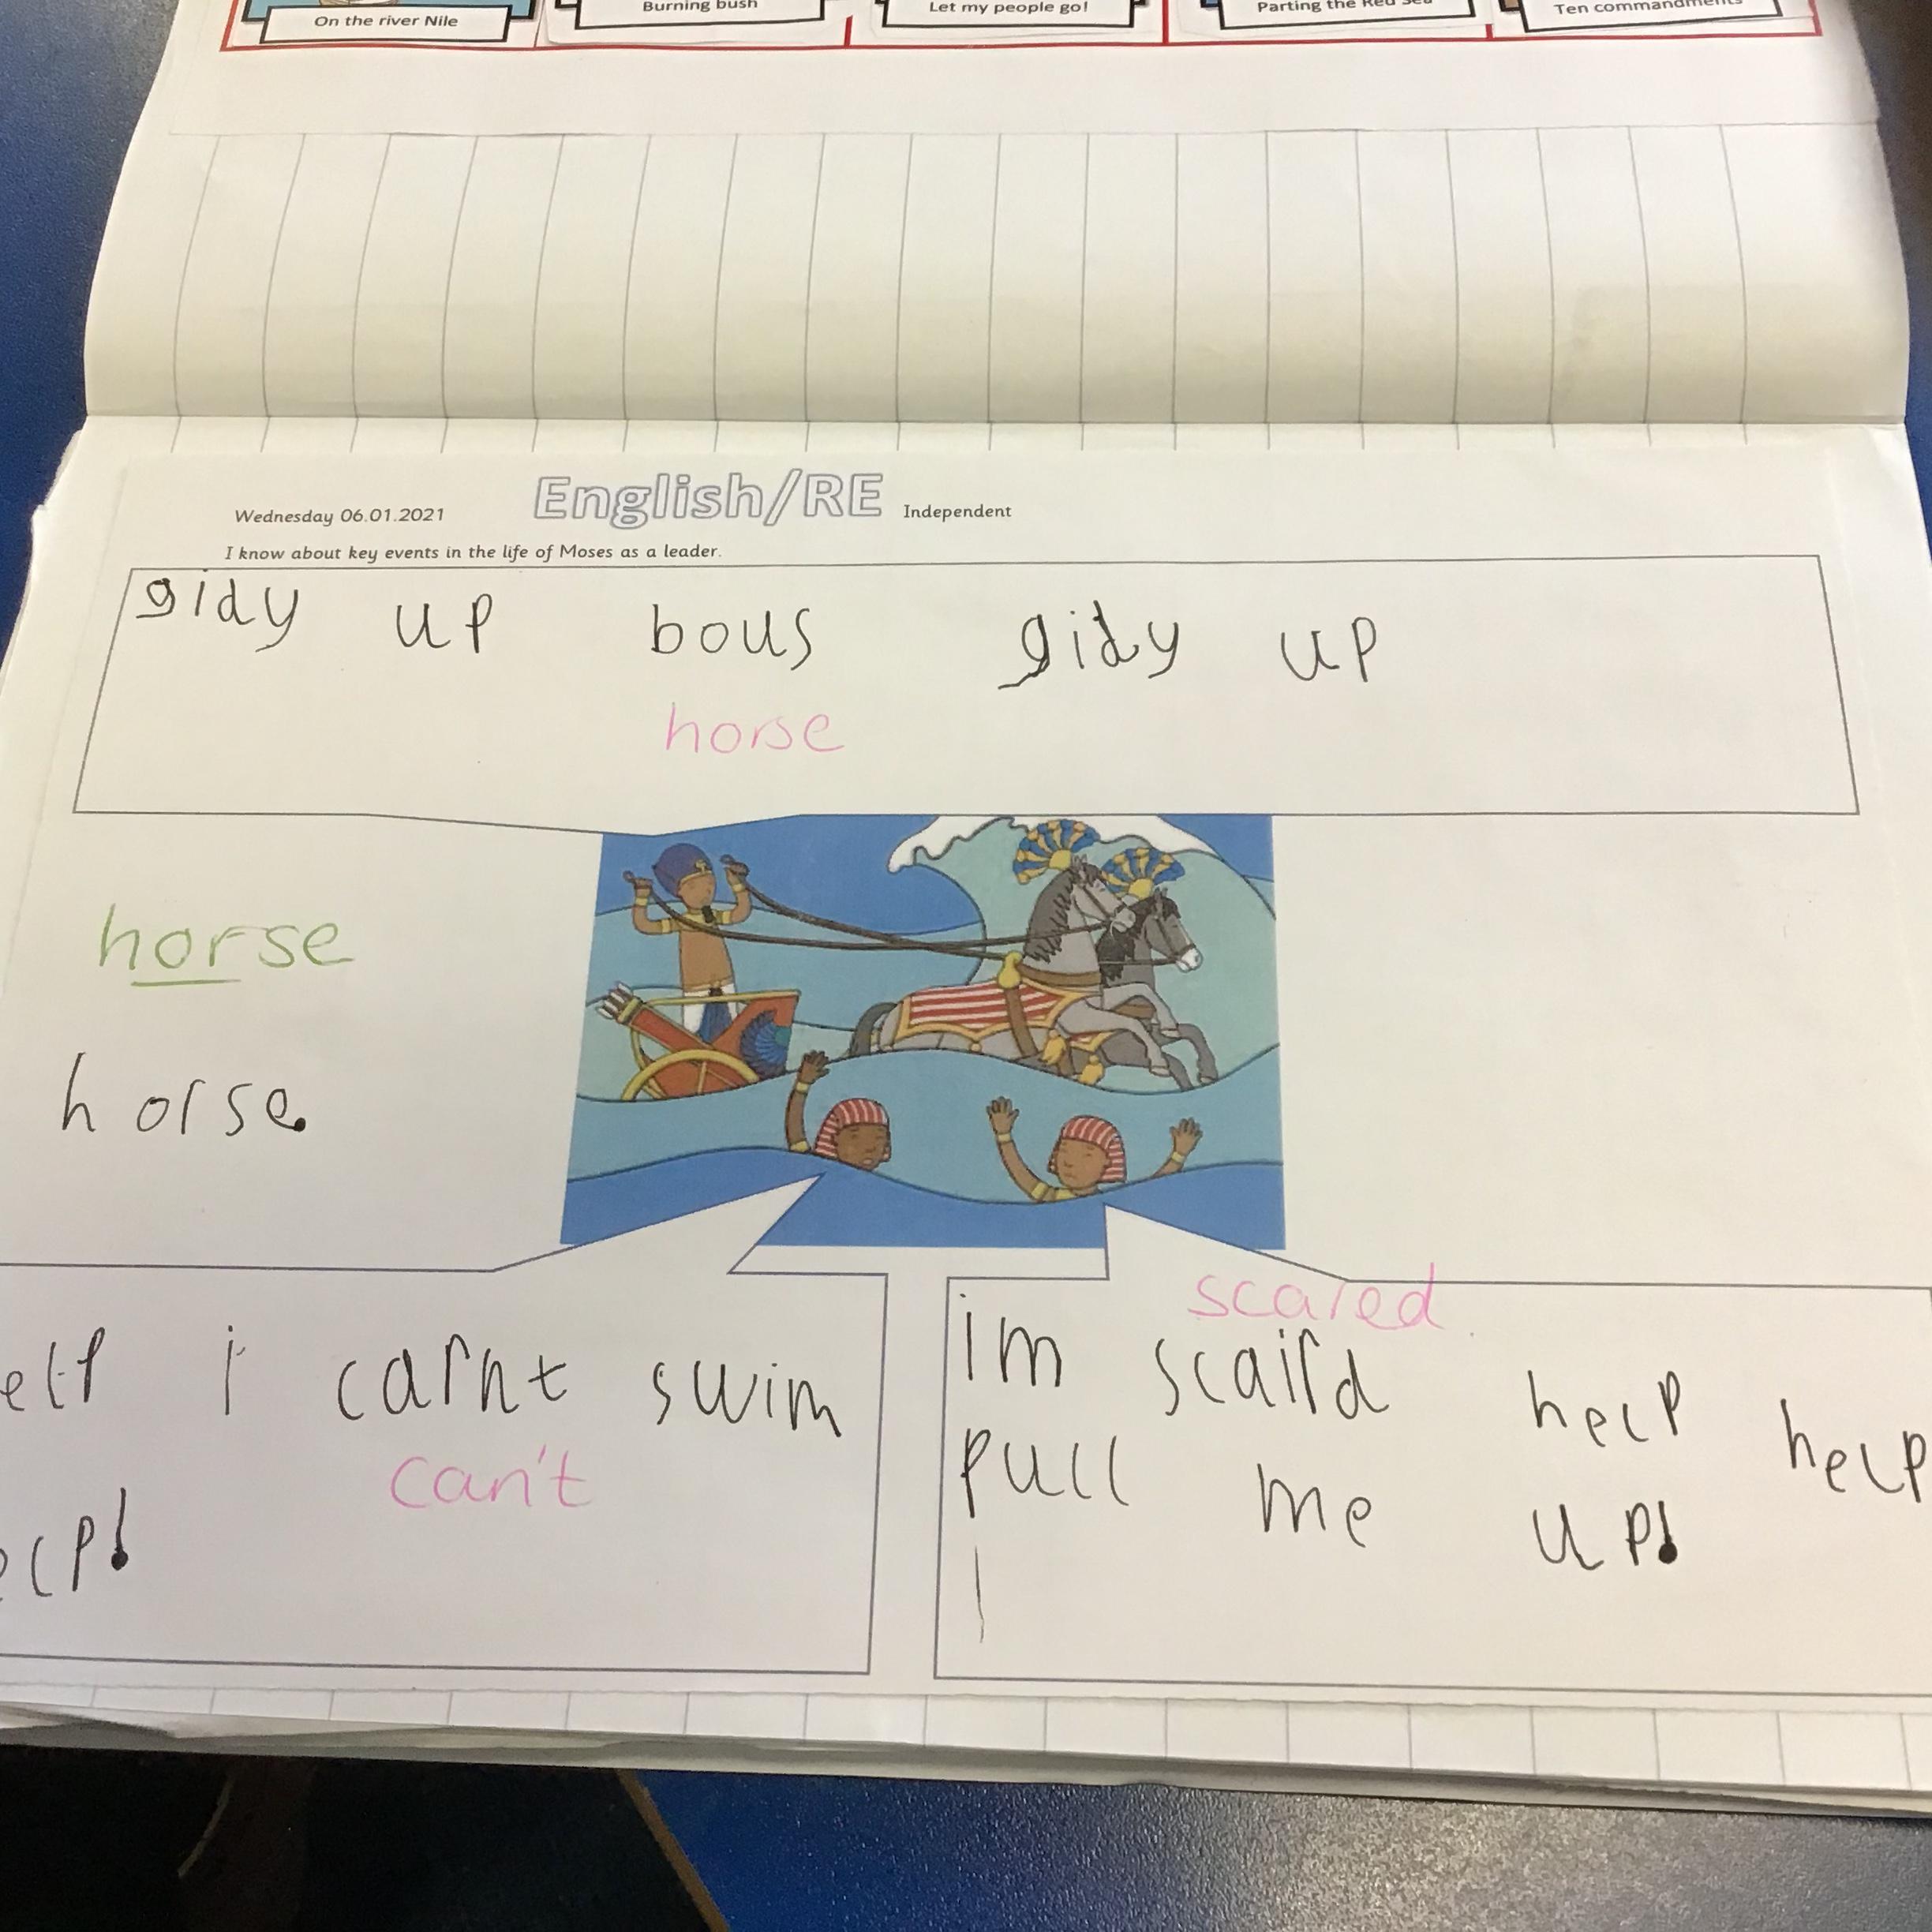 On the river Nile
Burning bush
Let my people go!
Parting the Red Sea
Ten commandments
Wednesday 06.01.2021 English/RE Independent
I know about key events in the life of Moses as a leader.
gidy up bous gidy up
horse
horse
horse.
elp i carnt swim
can't
elp!
scared
im scaird help help
pull me up!